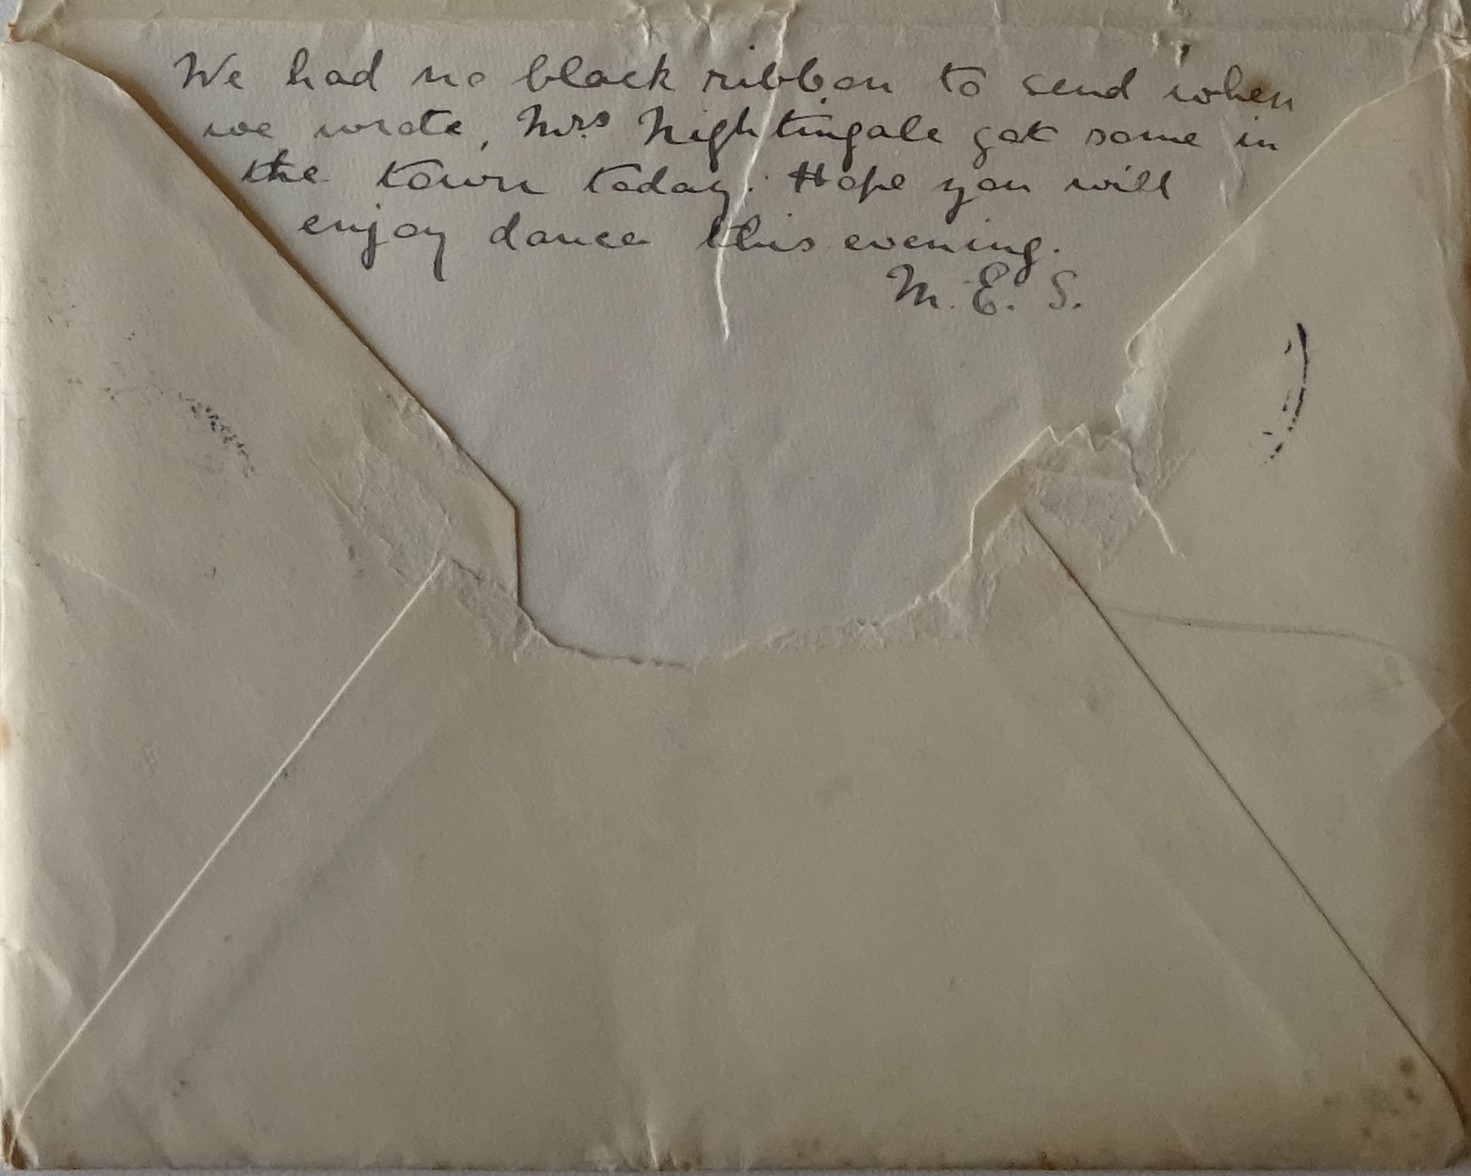 We had no black ribbon to send when
we wrote, Mrs Nightingale got some in
the town today. Hope you will
enjoy dance this evening.
M. E. S.